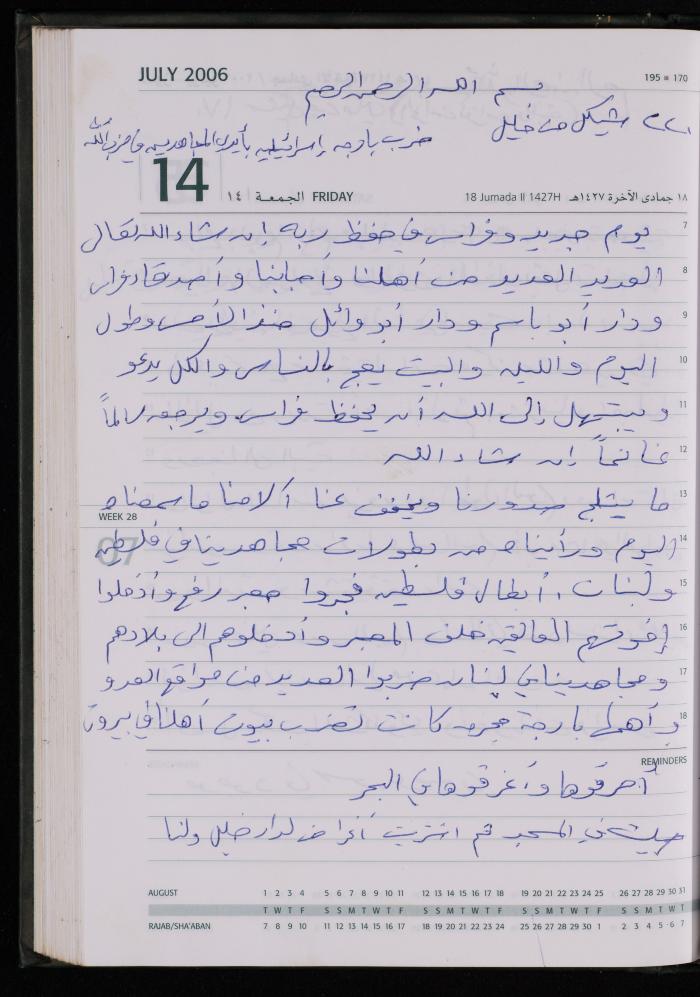 JULY 2006
195 ■ 170
بسم الله الرحمن الرحيم
٢٢٠ شيكل من خليل
ضرب بارجه إسرائيليه بأيدي المجاهدين في حزب الله
14
١٤ الجمعة FRIDAY
18 Jumada II 1427H ١٨ جمادى الآخرة ١٤٢٧هـ
7 يوم جديد وفراس في حفظ ربه إن شاء الله تعالى
8 العديد العديد من أهلنا وأحبابنا وأصدقاء فراس
9 ودار أبو باسم ودار أبو وائل منذ الأمس وطول
10 اليوم والليل والبيت يعج بالناس والكل يدعو
11 ويبتهل إلى الله أن يحفظ فراس ويرجعه سالماً
12 غانماً إن شاء الله
13 ما يثلج صدورنا ويخفف عنا آلامنا ما سمعناه
WEEK 28
14 اليوم ورأيناه من بطولات مجاهدينا في فلسطين
15 ولبنان، أبطال فلسطين فجروا معبر رفح وأدخلوا
16 إخوتهم العالقين خلف المعبر وأدخلوهم الى بلادهم
17 ومجاهدينا في لبنان ضربوا العديد من مواقع العدو
18 وأهمها بارجة حربيه كانت تضرب بيوت أهلنا في بيروت
REMINDERS
أحرقوها وأغرقوها في البحر
صليت في المسجد ثم اشتريت أغراض لدار خليل ولنا
AUGUST 1 2 3 4 5 6 7 8 9 10 11 12 13 14 15 16 17 18 19 20 21 22 23 24 25 26 27 28 29 30 31
T W T F S S M T W T F S S M T W T F S S M T W T F S S M T W T
RAJAB/SHA'ABAN 7 8 9 10 11 12 13 14 15 16 17 18 19 20 21 22 23 24 25 26 27 28 29 30 1 2 3 4 5 6 7